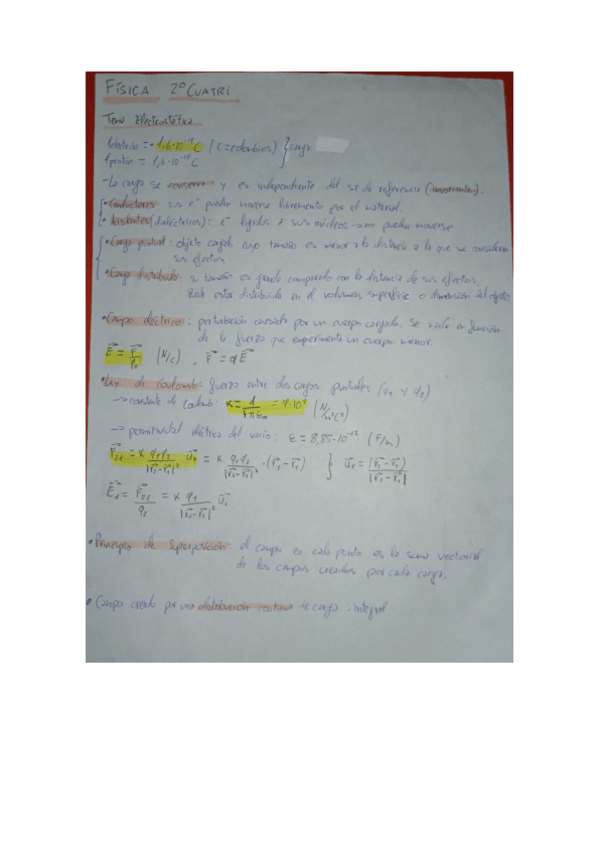 FÍSICA 2º CUATRI
Tema Electrostática
1 electrón = -1,6·10⁻¹⁹ C (C = culombios) } carga
1 protón = 1,6·10⁻¹⁹ C
- La carga se conserva y es independiente del sist de referencia (invariante).
• Conductores: sus e⁻ pueden moverse libremente por el material.
• Aislantes (dieléctricos): e⁻ ligados a sus núcleos → no pueden moverse
• Carga puntual: objeto cargado cuyo tamaño es menor a la distancia a la que se consideran
sus efectos.
• Carga distribuida: su tamaño es grande comparado con la distancia de sus efectos.
Puede estar distribuida en el volumen, superficie o dimensión del objeto
• Campo eléctrico: perturbación causada por un cuerpo cargado. Se mide en función
de la fuerza que experimenta un cuerpo menor.
E⃗ = F⃗/q₀ (N/C) , F⃗ = qE⃗
• Ley de Coulomb: fuerza entre dos cargas puntuales (q₁ y q₂)
→ constante de Coulomb: K = 1/4πε₀ = 9·10⁹ (N/m²C²)
→ permitividad eléctrica del vacío: ε = 8,85·10⁻¹² (F/m)
F⃗₂₁ = K q₁q₂/|r⃗₂-r⃗₁|² u⃗r = K q₁q₂/|r⃗₂-r⃗₁|² · (r⃗₂-r⃗₁) } u⃗r = (r⃗₂-r⃗₁)/|r⃗₂-r⃗₁|
E⃗₁ = F⃗₂₁/q₂ = K q₁/|r⃗₂-r⃗₁|² u⃗₁
• Principio de Superposición: el campo en cada punto es la suma vectorial
de los campos creados por cada carga.
• Campo creado por una distribución continua de carga - integral